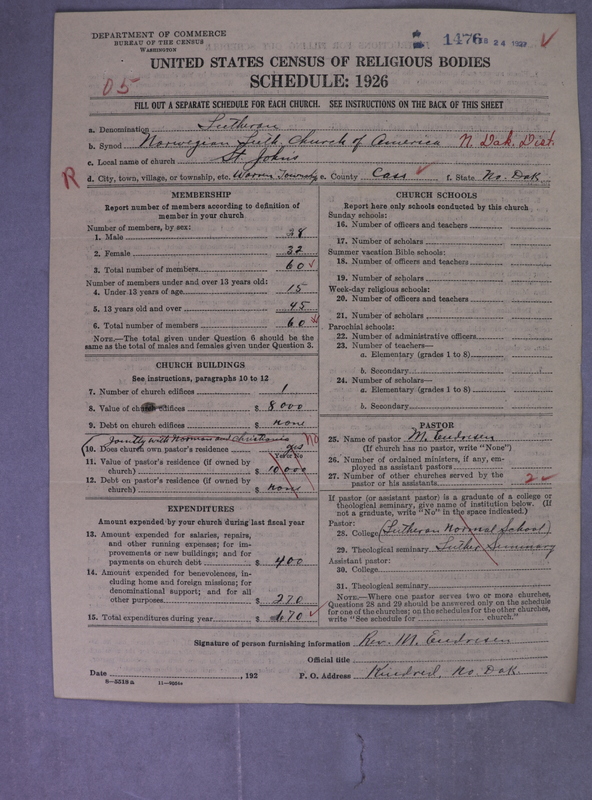 DEPARTMENT OF COMMERCE
BUREAU OF THE CENSUS
WASHINGTON
1476
8 24 1927
UNITED STATES CENSUS OF RELIGIOUS BODIES
SCHEDULE: 1926
05
FILL OUT A SEPARATE SCHEDULE FOR EACH CHURCH. SEE INSTRUCTIONS ON THE BACK OF THIS SHEET
a. Denomination Lutheran
b. Synod Norwegian Luth. Church of America N. Dak. Dist.
c. Local name of church St Johns
R d. City, town, village, or township, etc. Warren Township e. County Cass f. State No. Dak.
MEMBERSHIP
Report number of members according to definition of
member in your church
Number of members, by sex:
1. Male 28
2. Female 32
3. Total number of members 60
Number of members under and over 13 years old:
4. Under 13 years of age 15
5. 13 years old and over 45
6. Total number of members 60
NOTE.—The total given under Question 6 should be the
same as the total of males and females given under Question 3.
CHURCH BUILDINGS
See instructions, paragraphs 10 to 12
7. Number of church edifices 1
8. Value of church edifices $ 8000
9. Debt on church edifices $ none
Jointly with Norman and Christiania no
10. Does church own pastor's residence yes
Yes or No
11. Value of pastor's residence (if owned by
church) $ 10000
12. Debt on pastor's residence (if owned by
church) $ none
EXPENDITURES
Amount expended by your church during last fiscal year
13. Amount expended for salaries, repairs,
and other running expenses; for im-
provements or new buildings; and for
payments on church debt $ 400
14. Amount expended for benevolences, in-
cluding home and foreign missions; for
denominational support; and for all
other purposes $ 270
15. Total expenditures during year $ 670
CHURCH SCHOOLS
Report here only schools conducted by this church
Sunday schools:
16. Number of officers and teachers
17. Number of scholars
Summer vacation Bible schools:
18. Number of officers and teachers
19. Number of scholars
Week-day religious schools:
20. Number of officers and teachers
21. Number of scholars
Parochial schools:
22. Number of administrative officers
23. Number of teachers—
a. Elementary (grades 1 to 8)
b. Secondary
24. Number of scholars—
a. Elementary (grades 1 to 8)
b. Secondary
PASTOR
25. Name of pastor M. Endresen
(If church has no pastor, write "None")
26. Number of ordained ministers, if any, em-
ployed as assistant pastors
27. Number of other churches served by the
pastor or his assistants 2
If pastor (or assistant pastor) is a graduate of a college or
theological seminary, give name of institution below. (If
not a graduate, write "No" in the space indicated.)
Pastor:
28. College (Lutheran Normal School)
29. Theological seminary Luther Seminary
Assistant pastor:
30. College
31. Theological seminary
NOTE.—Where one pastor serves two or more churches,
Questions 28 and 29 should be answered only on the schedule
for one of the churches; on the schedules for the other churches,
write "See schedule for church."
Signature of person furnishing information Rev. M. Endresen
Official title
Date , 192
P. O. Address Kindred, No. Dak.
8—5518a 11—9051